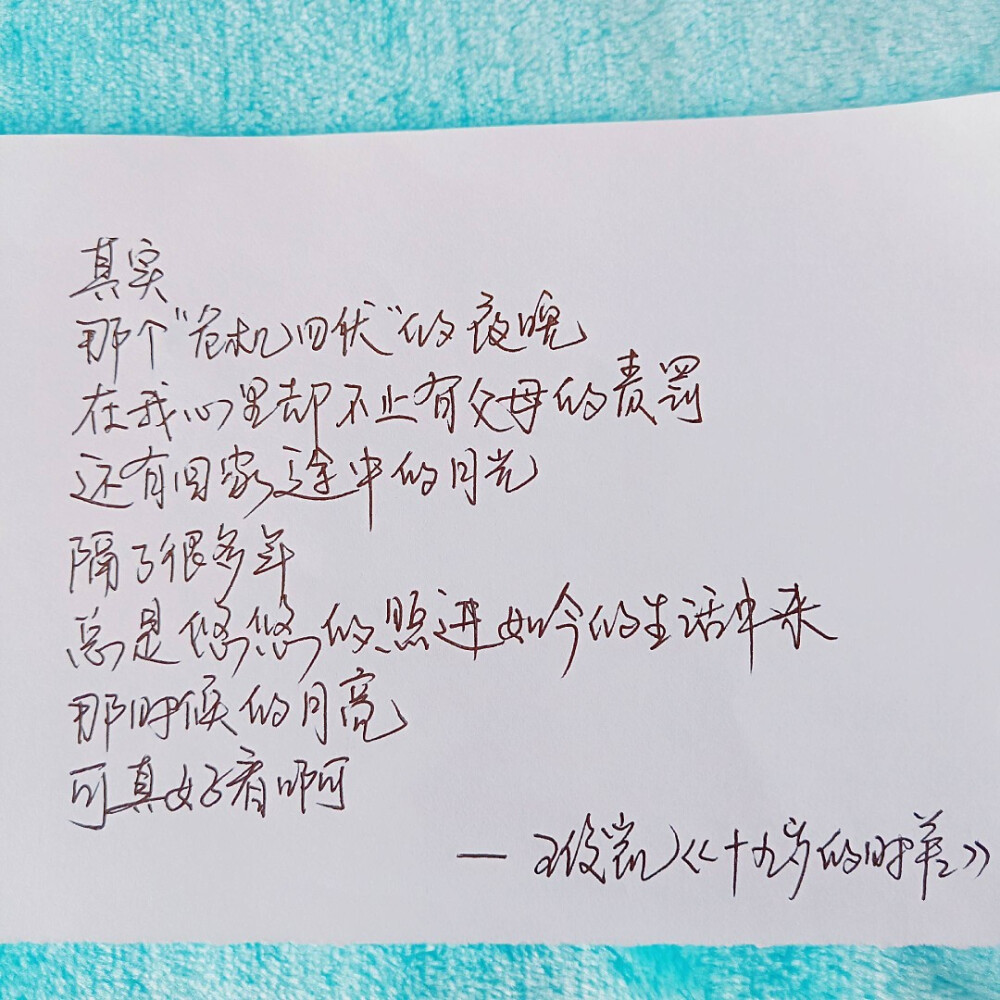 其实
那个"危机四伏"的夜晚
在我心里却不止有父母的责罚
还有回家途中的月光
隔了很多年
总是悠悠的照进如今的生活中来
那时候的月亮
可真好看啊
— 王俊凯《十九岁的时差》